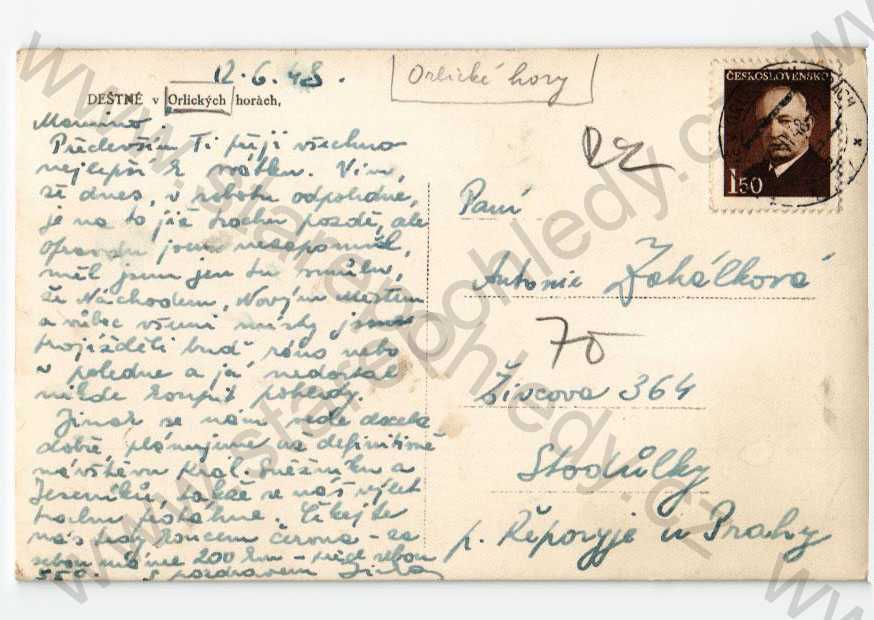 12.6.48.
Orlické hory
DEŠTNÉ v Orlických horách,
ČESKOSLOVENSKO
1·50
Maminko!
Především Ti přeji všechno
nejlepší k svátku. Vím,
že dnes, v sobotu odpoledne,
je na to již trochu pozdě, ale
opravdu jsem nezapomněl,
měl jsem jen tu smůlu,
že Náchodem, Novým Městem
a vůbec všemi místy jsme
projížděli buď ráno nebo
v poledne a já nedostal
nikde koupit pohledy.
Jinak se nám vede docela
dobře, plánujeme už definitivně
návštěvu Král. Sněžníku a
Jeseníků, takže se náš výlet
trochu protáhne. Čekejte
nás tedy koncem června - za
sebou máme 200 km - před sebou
550. S pozdravem
22
Paní
Antonie Zahálková
70
Živcova 364
Stodůlky
p. Řeporyje u Prahy
www.starepohledy.cz
www.starepohledy.cz